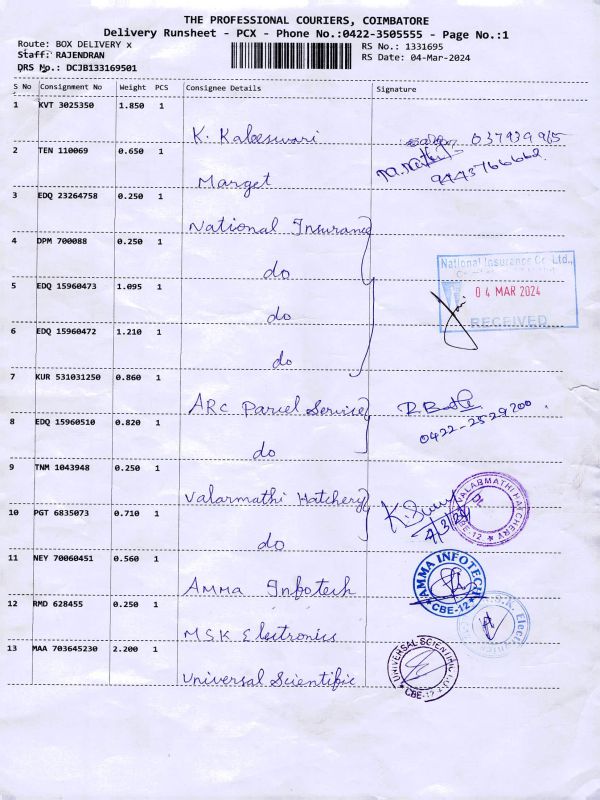 THE PROFESSIONAL COURIERS, COIMBATORE
Delivery Runsheet - PCX - Phone No.:0422-3505555 - Page No.:1
Route: BOX DELIVERY x
RS No.: 1331695
Staff: RAJENDRAN
RS Date: 04-Mar-2024
DRS No.: DCJB133169501
S No Consignment No Weight PCS Consignee Details Signature
1 KVT 3025350 1.850 1
K. Kaleeswari
2 TEN 110069 0.650 1
9443766662
Marget
3 EDQ 23264758 0.250 1
National Insurance
4 DPM 700088 0.250 1
do
National Insurance Co. Ltd.,
5 EDQ 15960473 1.095 1
04 MAR 2024
do
RECEIVED
6 EDQ 15960472 1.210 1
do
7 KUR 531031250 0.860 1
ARC Parcel Service
8 EDQ 15960510 0.820 1
0422-2529200
do
9 TNM 1043948 0.250 1
Valarmathi Hatchery
VALARMATHI HATCHERY
CBE-12
10 PGT 6835073 0.710 1
4/3/24
do
11 NEY 70060451 0.560 1
AMMA INFOTECH
CBE-12
Amma Infotech
12 RMD 628455 0.250 1
MSK Electronics
13 MAA 703645230 2.200 1
UNIVERSAL SCIENTIFIC
CBE-12
Universal Scientific